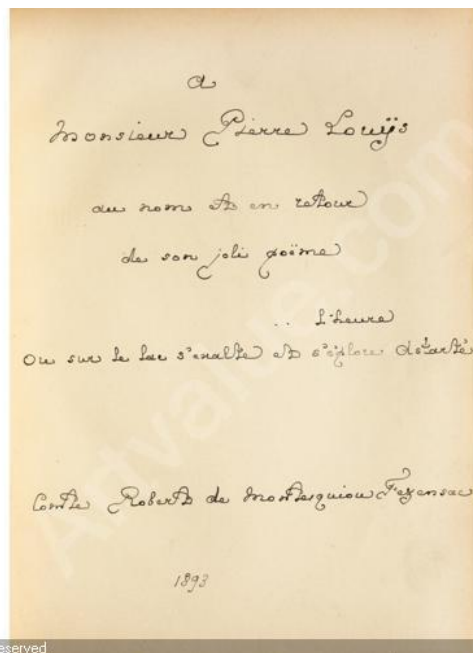 a
Monsieur Pierre Louÿs
au nom et en retour
de son joli poème
.. L'heure
Ou sur le lac s'exalte et s'éplore Astarté
Comte Robert de Montesquiou Fezensac
1893
Artvalue.com
eserved